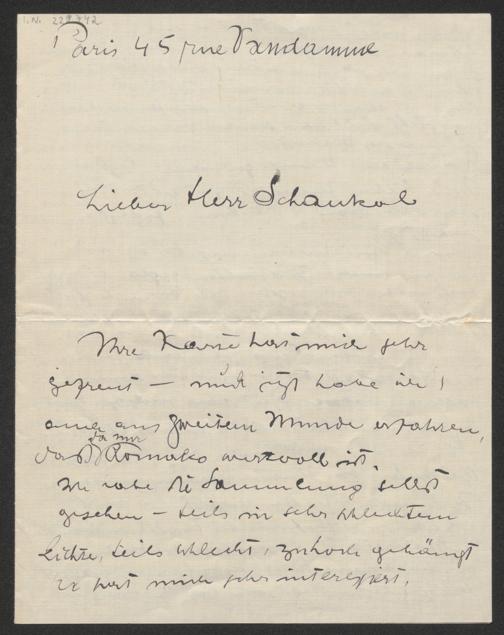 I.N. 227442
Paris 45 rue Vandamme
Lieber Herr Schaukal
Ihre Karte hat mich sehr
gefreut – und jetzt habe ich
auch aus zweitem Munde erfahren,
da nur
daß Romako wertvoll ist.
Ich habe die Sammlung selbst
gesehen – teils in sehr schlechtem
Lichte, teils schlecht, zu hoch gehängt
es hat mich sehr interessiert.